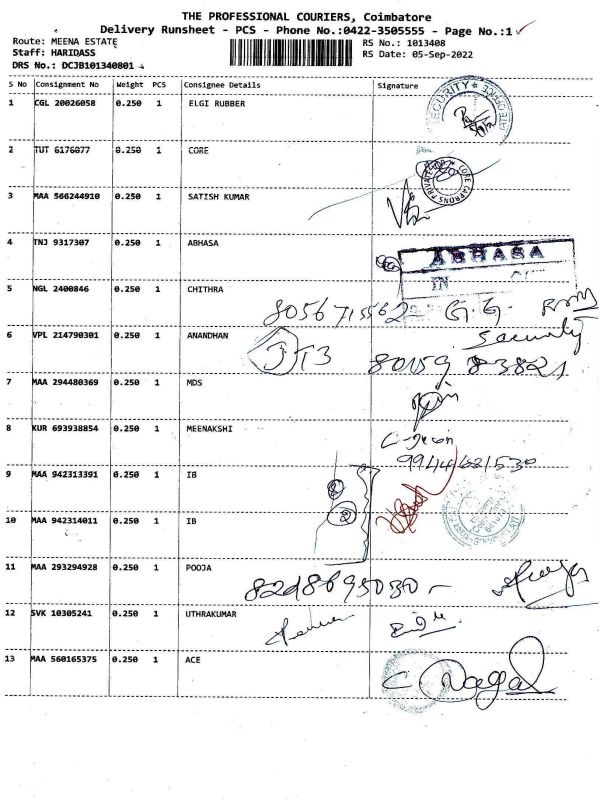 THE PROFESSIONAL COURIERS, Coimbatore
Delivery Runsheet - PCS - Phone No.:0422-3505555 - Page No.:1
Route: MEENA ESTATE
RS No.: 1013408
Staff: HARIDASS
RS Date: 05-Sep-2022
DRS No.: DCJB101340801
S No Consignment No Weight PCS Consignee Details Signature
1 CGL 20026058 0.250 1 ELGI RUBBER
SECURITY
2 TUT 6176077 0.250 1 CORE
CORE CARBONS PRIVATE
3 MAA 566244910 0.250 1 SATISH KUMAR
4 TNJ 9317307 0.250 1 ABHASA
ABHASA
IN
5 NGL 2400846 0.250 1 CHITHRA
8056715562 G.G.
Security
6 VPL 214790301 0.250 1 ANANDHAN
80159 83821
7 MAA 294480369 0.250 1 MDS
8 KUR 693938854 0.250 1 MEENAKSHI
9944681530
9 MAA 942313391 0.250 1 IB
2
10 MAA 942314011 0.250 1 IB
11 MAA 293294928 0.250 1 POOJA
12 SVK 10305241 0.250 1 UTHRAKUMAR
13 MAA 560165375 0.250 1 ACE
C Nagal